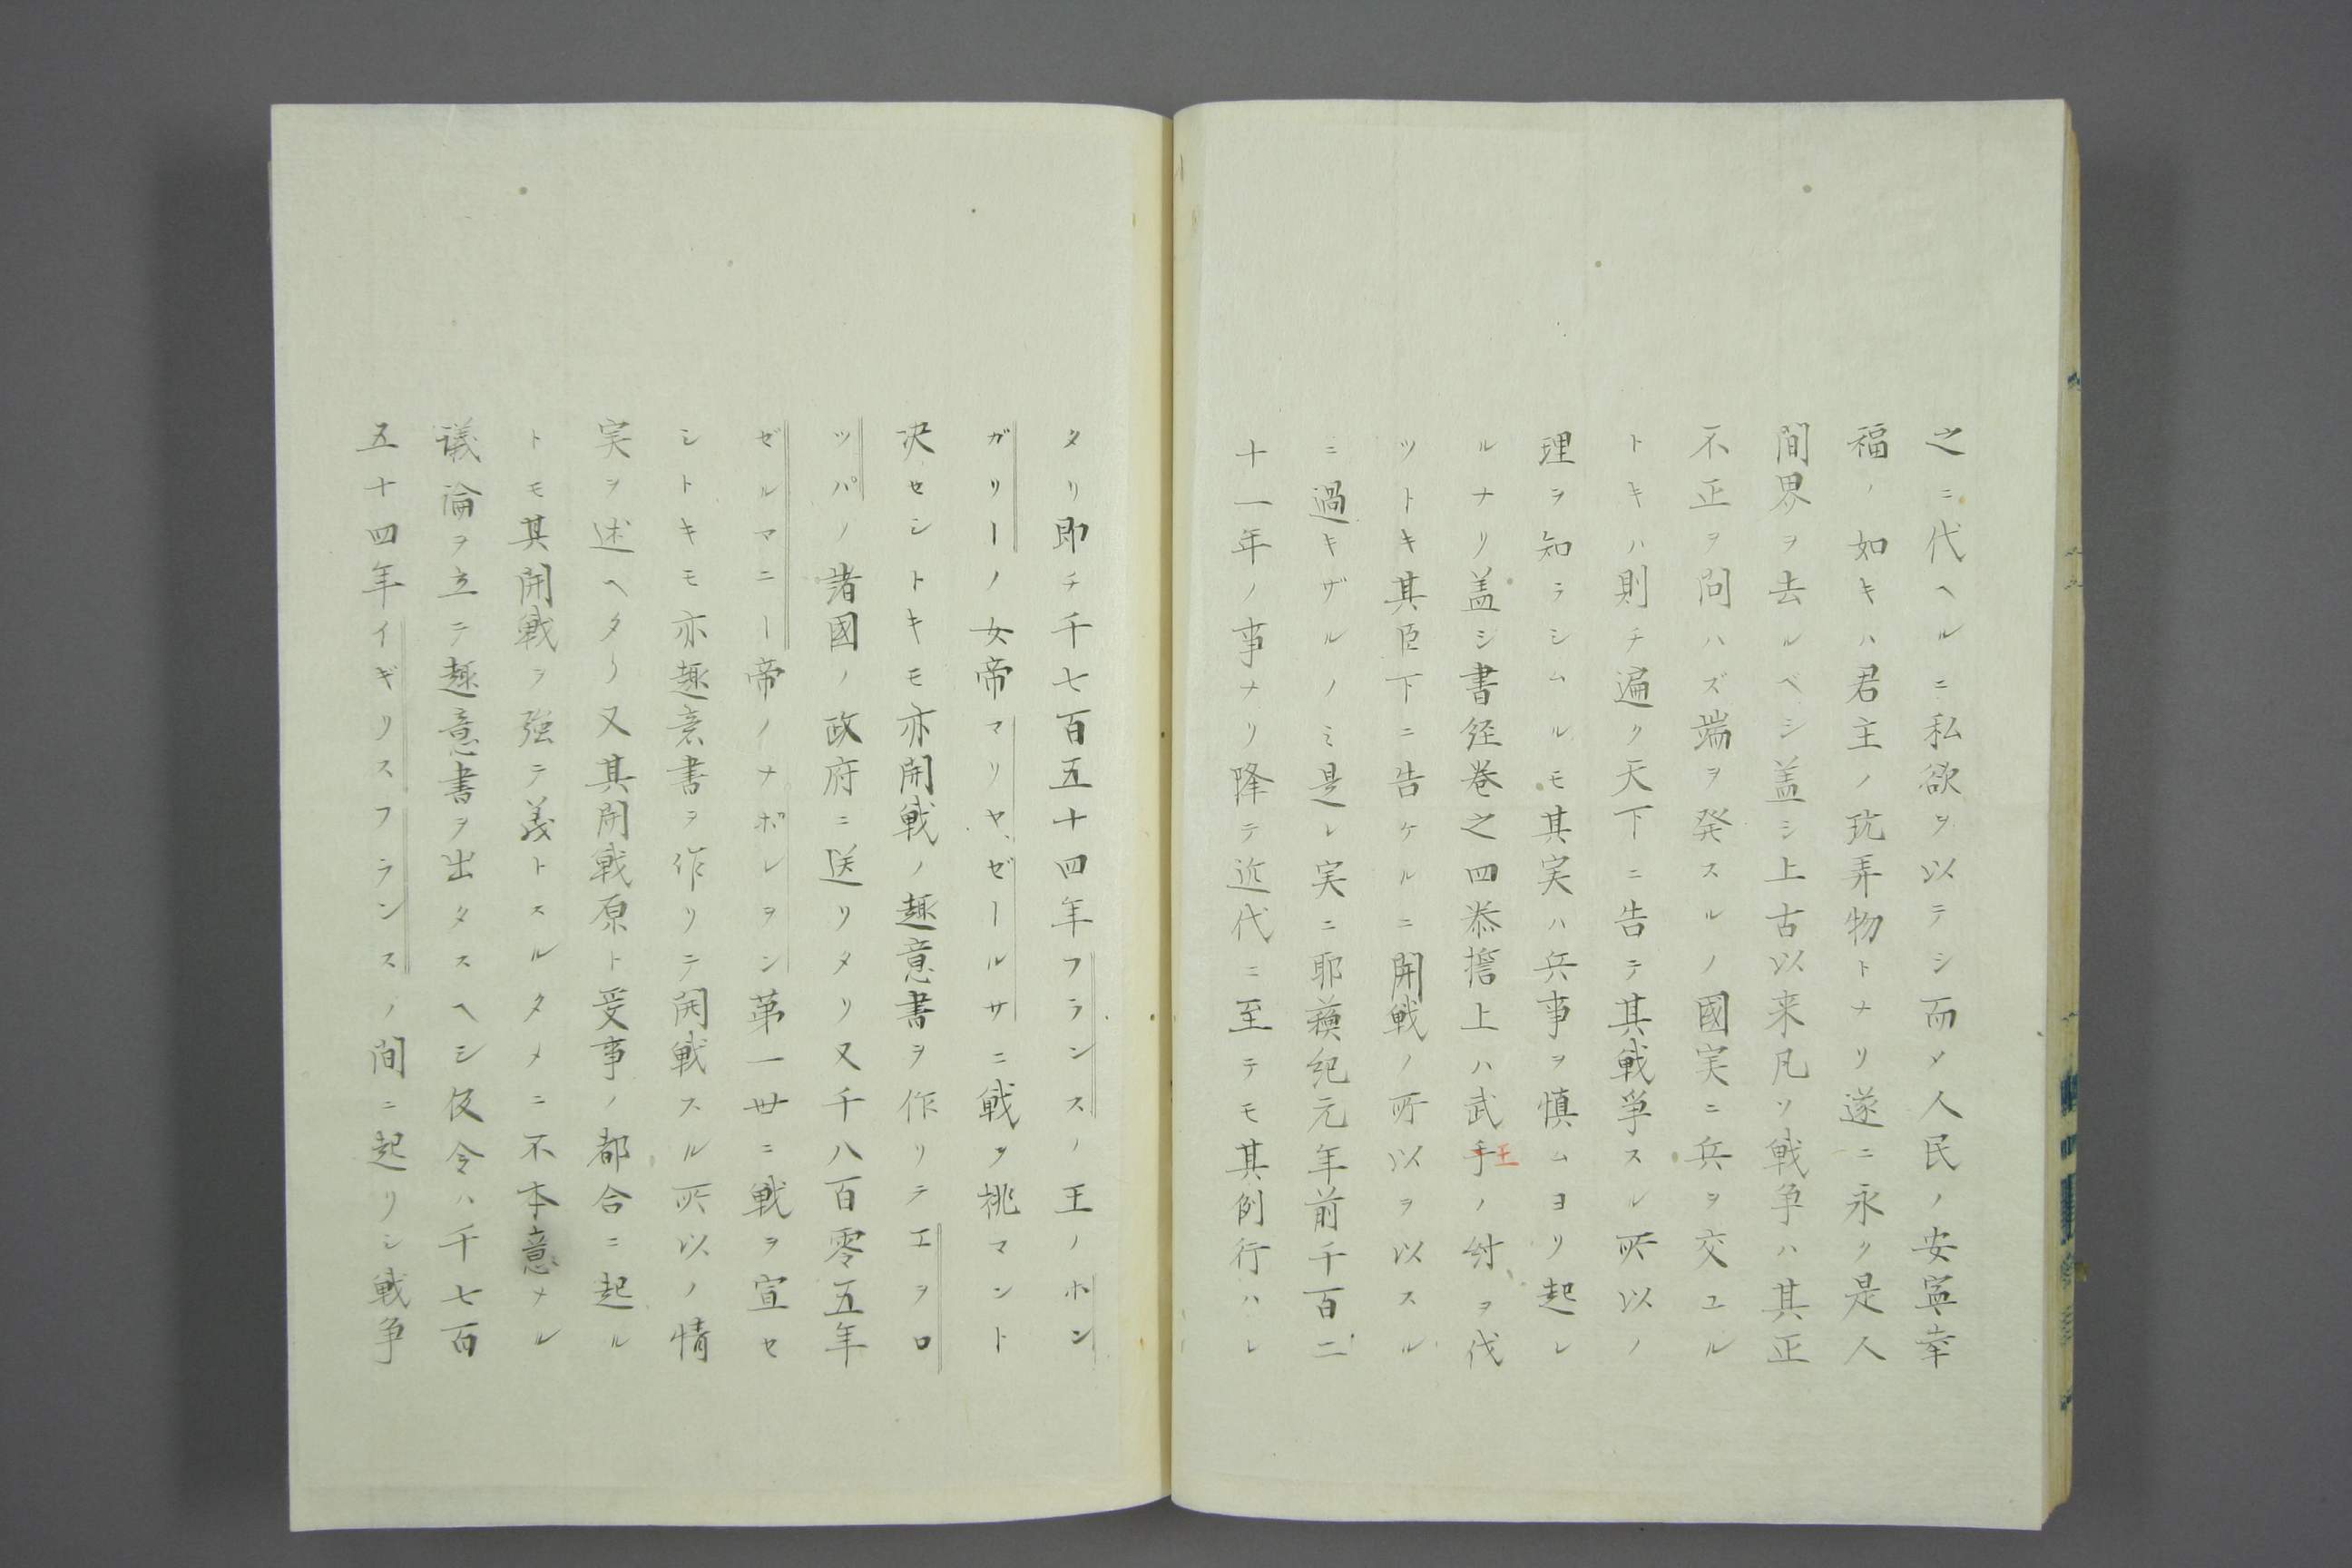 之ニ代ヘルニ私欲ヲ以テシ而メ人民ノ安寧幸
福ノ如キハ君主ノ玩弄物トナリ遂ニ永ク是人
間界ヲ去ルベシ盖シ上古以来凡ソ戦争ハ其正
不正ヲ問ハズ端ヲ発スルノ國実ニ兵ヲ交ユル
トキハ則チ遍ク天下ニ告テ其戦争スル所以ノ
理ヲ知ラシムルモ其実ハ兵事ヲ慎ムヨリ起レ
ルナリ盖シ書経巻之四泰誓上ハ武手王ノ紂ヲ伐
ツトキ其臣下ニ告ケルニ開戦ノ所以ヲ以スル
ニ過キザルノミ是レ実ニ耶蘓紀元年前千百二
十一年ノ事ナリ降テ近代ニ至テモ其例行ハレ
タリ即チ千七百五十四年フランスノ王ノホン
ガリーノ女帝マリヤ、ゼールサニ戦ヲ挑マント
决セシトキモ亦開戦ノ趣意書ヲ作リテエヲロ
ツパノ諸國ノ政府ニ送リタリ又千八百零五年
ゼルマニー帝ノナポレヲン第一世ニ戦ヲ宣セ
シトキモ亦趣意書ヲ作リテ開戦スル所以ノ情
実ヲ述ヘタリ又其開戦原ト妥事ノ都合ニ起ル
トモ其開戦ヲ強テ義トスルタメニ不本意ナル
議論ヲ立テ趣意書ヲ出タスヘシ仮令ハ千七百
五十四年イギリスフランスノ間ニ起リシ戦争